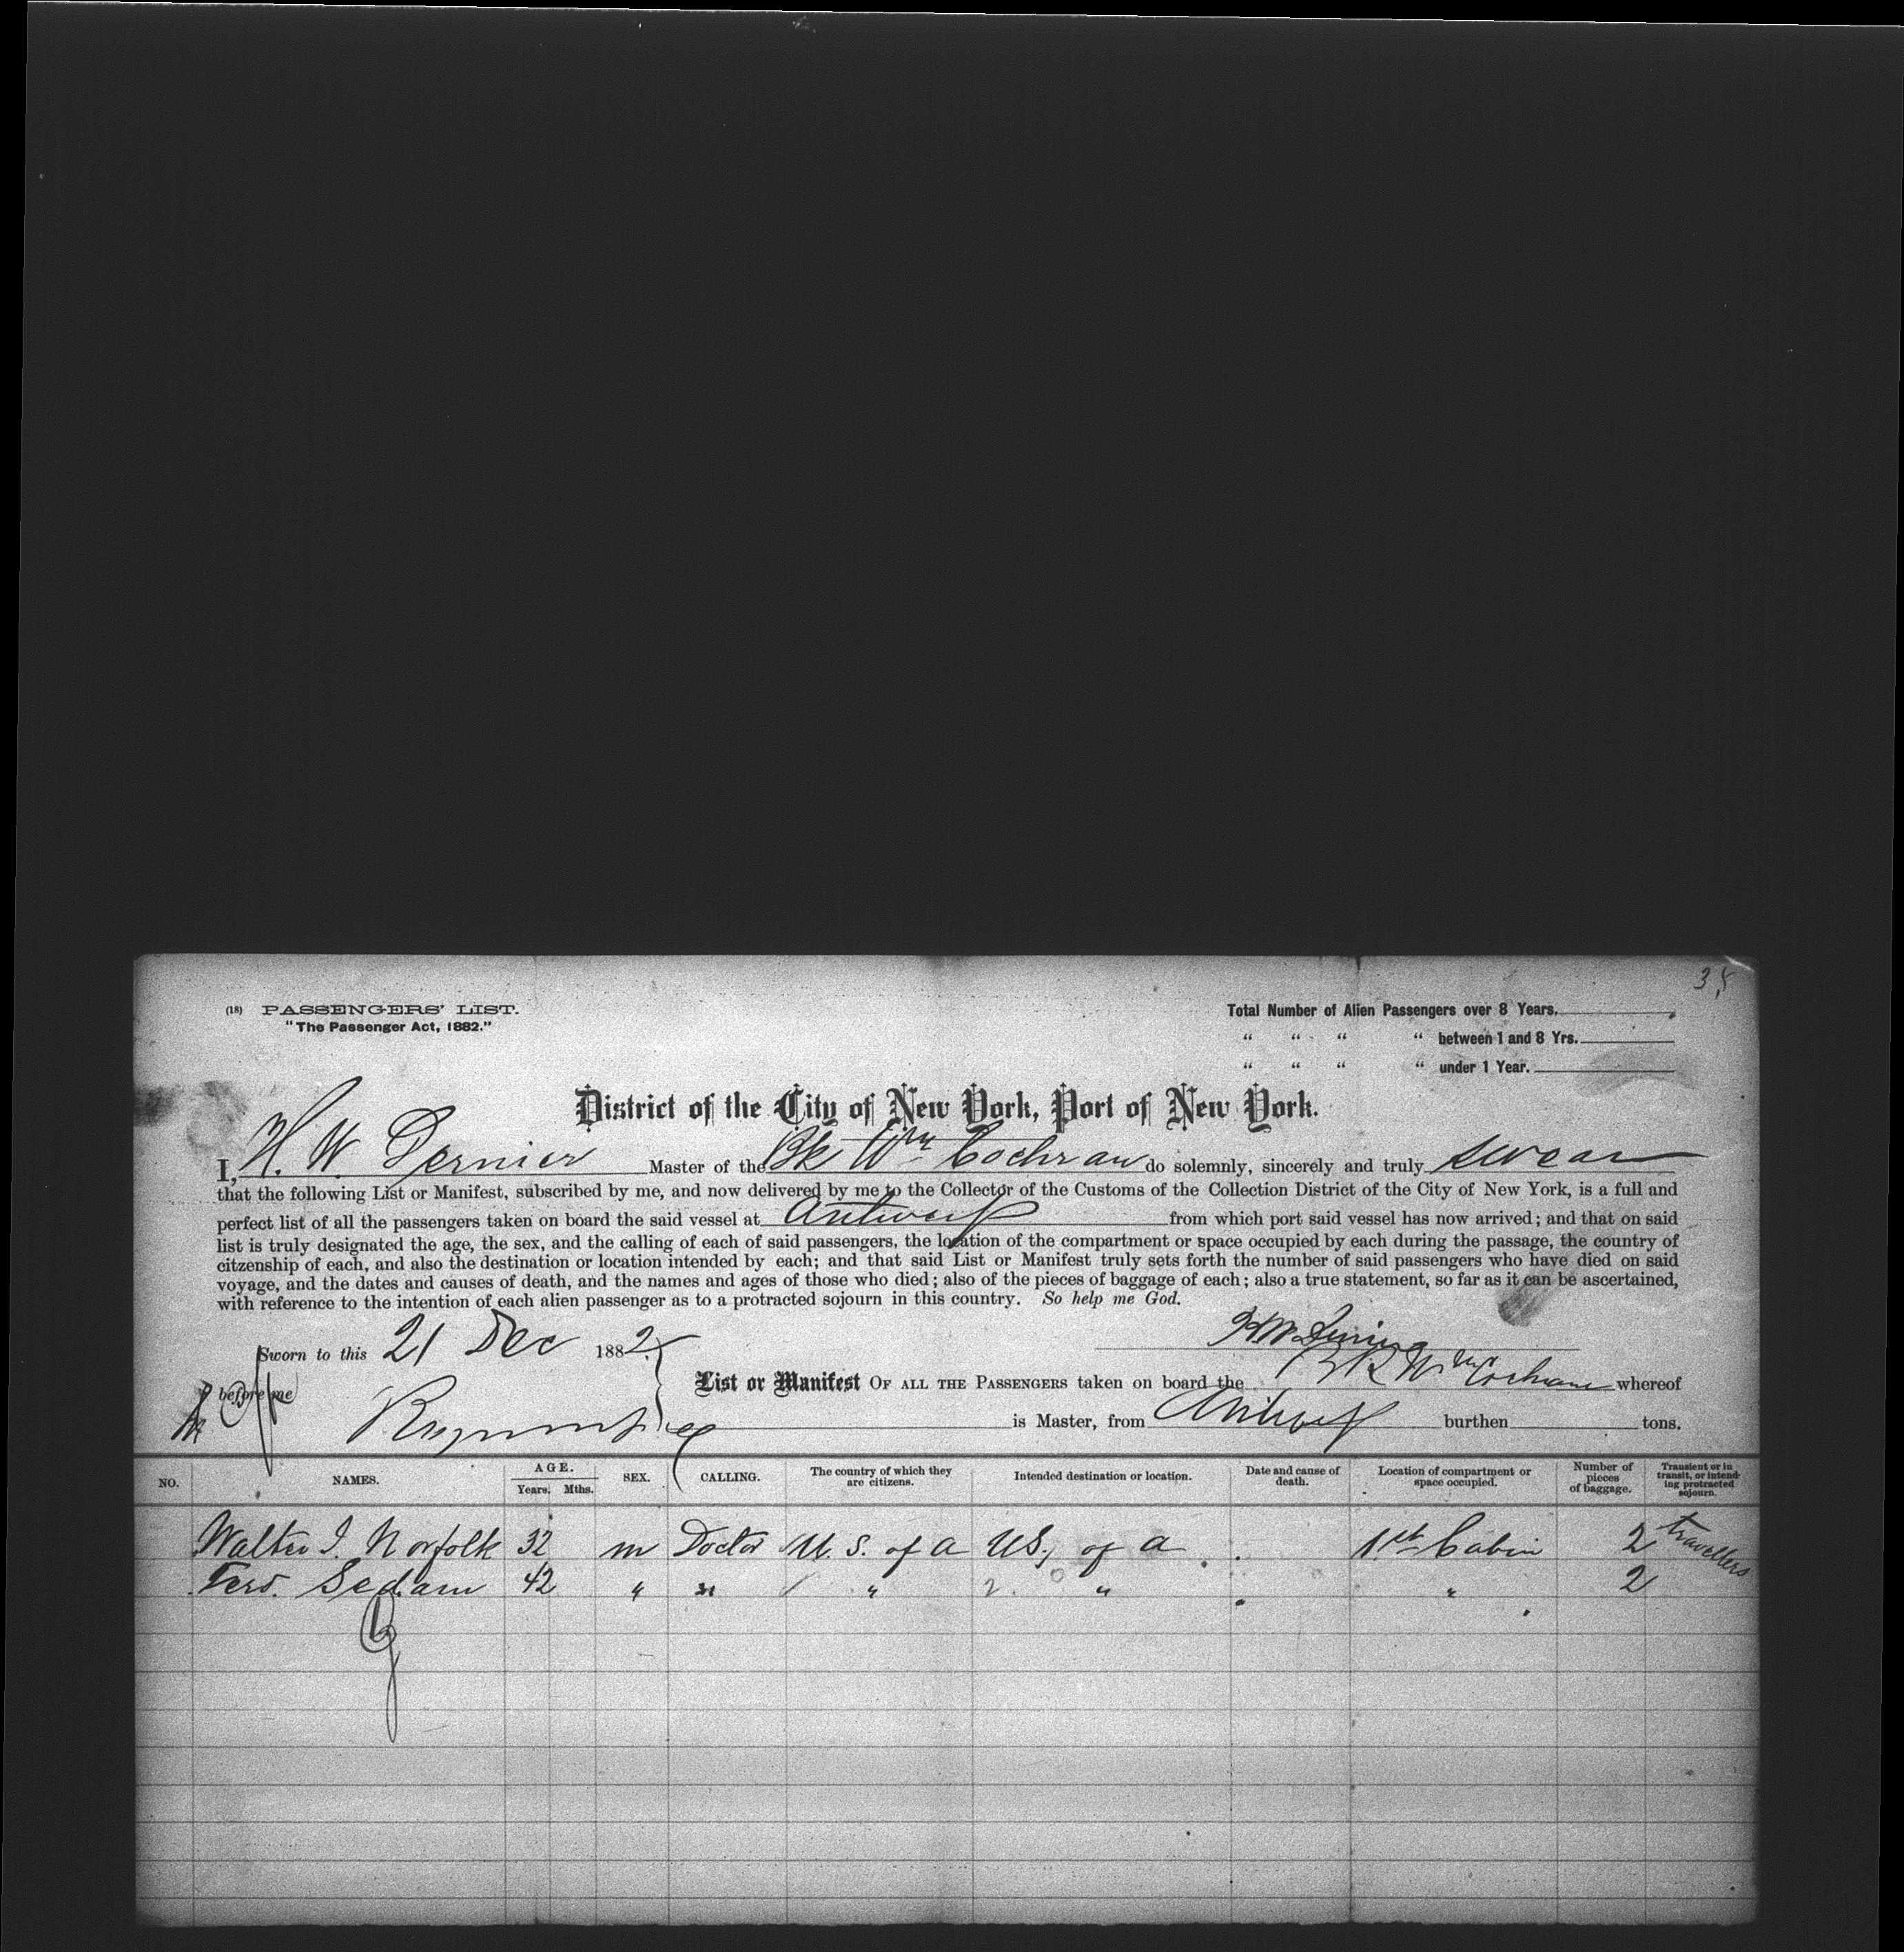 35
(18) PASSENGERS' LIST.
"The Passenger Act, 1882."
Total Number of Alien Passengers over 8 Years.
“ “ “ “ between 1 and 8 Yrs.
“ “ “ “ under 1 Year.
District of the City of New York, Port of New York.
I, H. W. Dernier Master of the Bk Wm Cochran do solemnly, sincerely and truly swear
that the following List or Manifest, subscribed by me, and now delivered by me to the Collector of the Customs of the Collection District of the City of New York, is a full and
perfect list of all the passengers taken on board the said vessel at Antwerp from which port said vessel has now arrived; and that on said
list is truly designated the age, the sex, and the calling of each of said passengers, the location of the compartment or space occupied by each during the passage, the country of
citzenship of each, and also the destination or location intended by each; and that said List or Manifest truly sets forth the number of said passengers who have died on said
voyage, and the dates and causes of death, and the names and ages of those who died; also of the pieces of baggage of each; also a true statement, so far as it can be ascertained,
with reference to the intention of each alien passenger as to a protracted sojourn in this country. So help me God.
Sworn to this 21 Dec 1882
before me
List or Manifest OF ALL THE PASSENGERS taken on board the Bk Wm Cochran whereof
is Master, from Antwerp burthen tons.
NO. NAMES. AGE. Years. Mths. SEX. CALLING. The country of which they are citizens. Intended destination or location. Date and cause of death. Location of compartment or space occupied. Number of pieces of baggage. Transient or in transit, or intending protracted sojourn.
Walter I. Norfolk 32 m Doctor U. S. of A U.S. of A 1st Cabin 2 travellers
Ferd. Sedam 42 “ “ “ “ “ 2